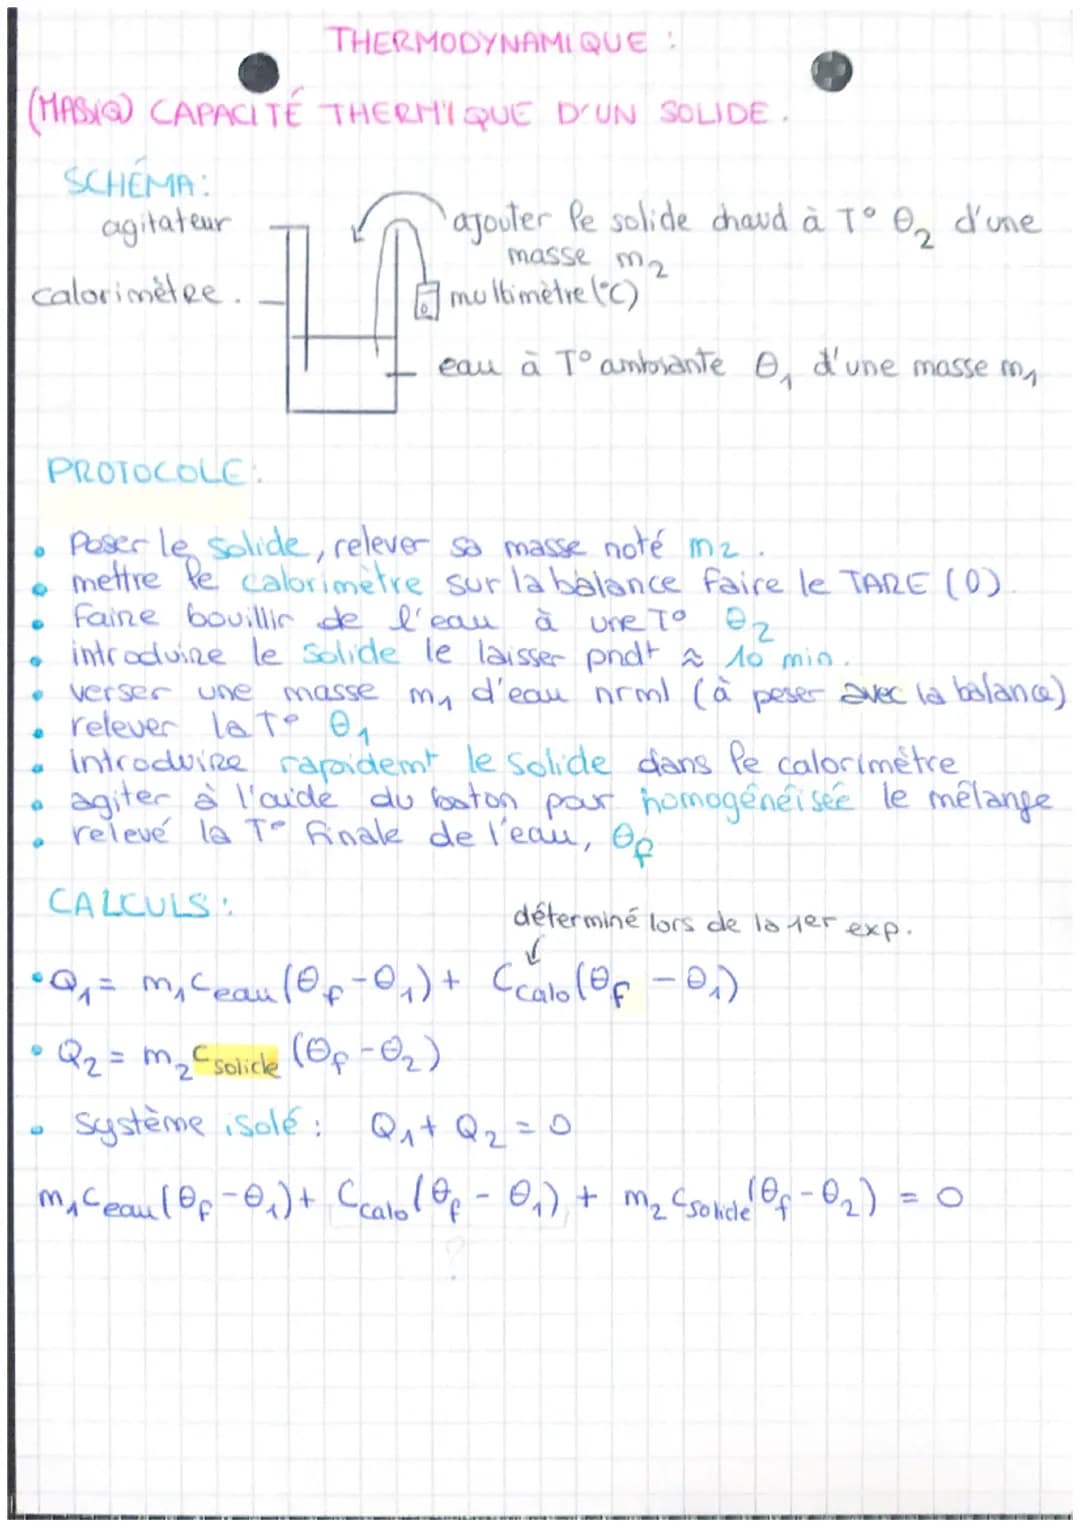 THERMODYNAMIQUE :
(MASSIQ) CAPACITÉ THERMIQUE D'UN SOLIDE.
SCHÉMA:
agitateur
ajouter le solide chaud à T° θ₂ d'une
masse m₂
calorimètre.
multimètre (°C)
eau à T° ambiante θ₁ d'une masse m₁
PROTOCOLE:
• Peser le solide, relever sa masse noté m₂.
• mettre le calorimètre sur la balance faire le TARE (0).
• Faire bouillir de l'eau à une T° θ₂
• introduire le solide le laisser pndt ≈ 10 min.
• verser une masse m₁ d'eau nrml (à peser avec la balance)
• relever la T° θ₁
• introduire rapidemt le solide dans le calorimètre
• agiter à l'aide du baton pour homogénéisée le mélange
• relevé la T° finale de l'eau, θf
CALCULS:
déterminé lors de la 1er exp.
• Q₁ = m₁Ceau(θf-θ₁) + Ccalo(θf - θ₁)
• Q₂ = m₂Csolide (θf-θ₂)
• Système isolé : Q₁ + Q₂ = 0
m₁Ceau(θf-θ₁) + Ccalo(θf - θ₁) + m₂Csolide(θf-θ₂) = 0
?